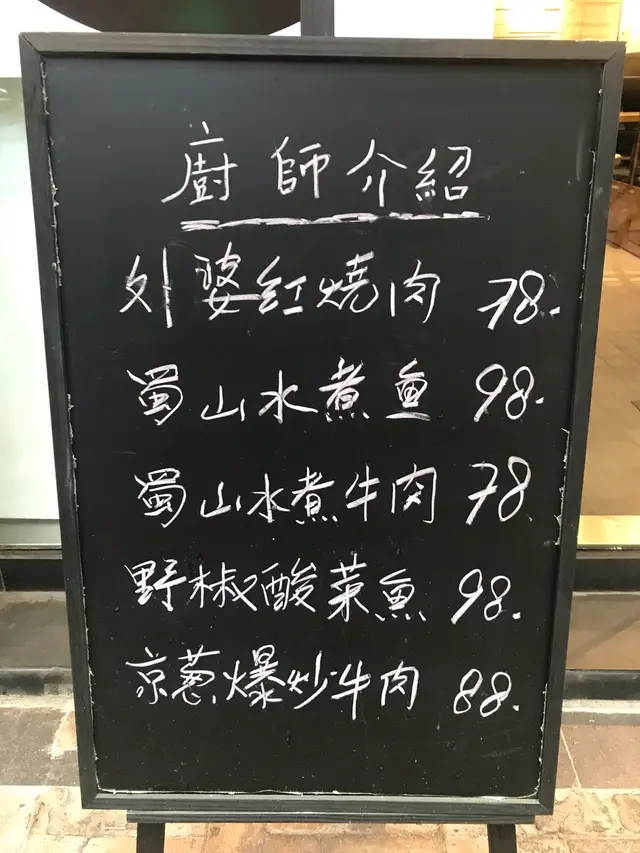 廚師介紹
外婆紅燒肉 78.
蜀山水煮魚 98.
蜀山水煮牛肉 78.
野椒酸菜魚 98.
京蔥爆炒牛肉 88.